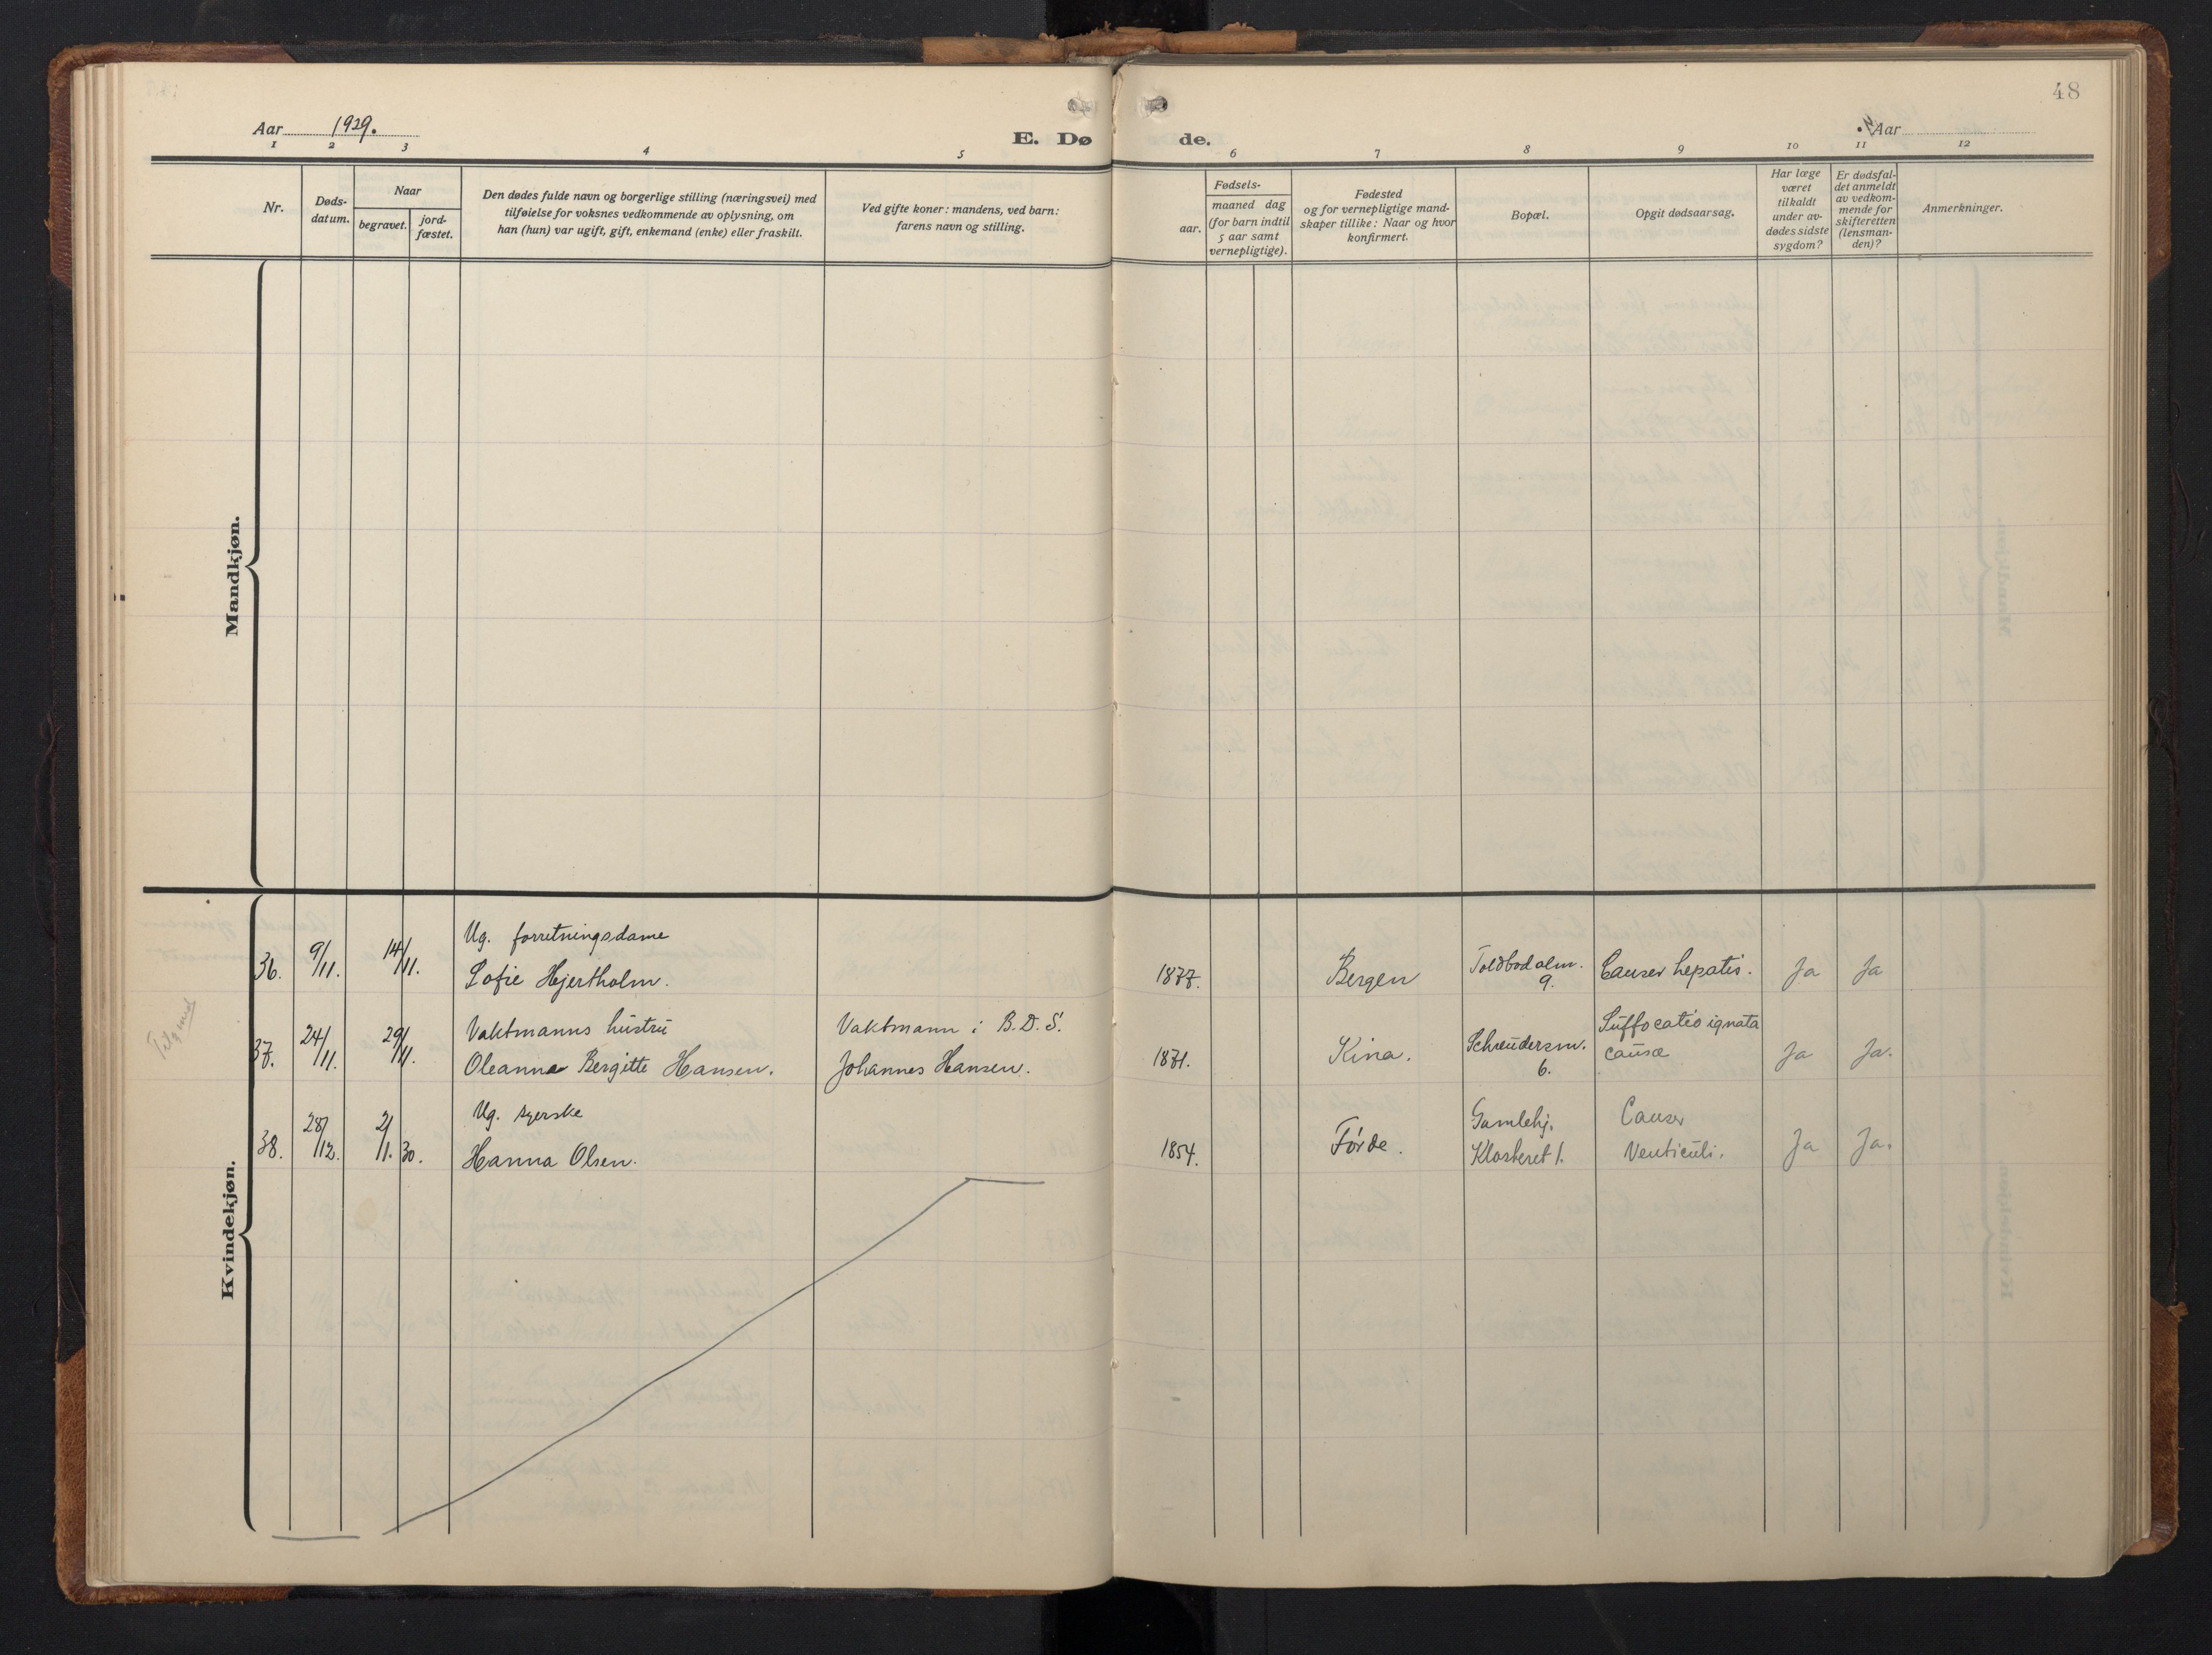 48
Aar 1929.
E. Døde.
Aar
1 2 3 4 5 6 7 8 9 10 11 12
Nr.
Døds-
datum.
Naar
begravet.
jord-
fæstet.
Den dødes fulde navn og borgerlige stilling (næringsvei) med
tilføielse for voksnes vedkommende av oplysning, om
han (hun) var ugift, gift, enkemand (enke) eller fraskilt.
Ved gifte koner: mandens, ved barn:
farens navn og stilling.
Fødsels-
aar.
maaned dag
(for barn indtil
5 aar samt
vernepligtige).
Fødested
og for vernepligtige mand-
skaper tillike: Naar og hvor
konfirmert.
Bopæl.
Opgit dødsaarsag.
Har læge
været
tilkaldt
under av-
dødes sidste
sygdom?
Er dødsfal-
det anmeldt
av vedkom-
mende for
skifteretten
(lensman-
den)?
Anmerkninger.
Mandkjøn.
Kvindekjøn.
Ug. forretningsdame
36. 9/11. 14/11. Sofie Hjertholm. 1877. Bergen Toldbodalm. 9. Cancer hepatis. Ja Ja
Vaktmanns hustru Vaktmann i B.D.S. Suffocatio ignata
37. 24/11. 29/11. Oleanna Bergitte Hansen. Johannes Hansen. 1871. Kina. Schreudersm. 6. causa Ja Ja.
Ug. syerske Gamlehj. Cancer
38. 28/12. 2/1. 30. Hanna Olsen. 1854. Førde. Klosteret 1. Venticuli. Ja Ja.